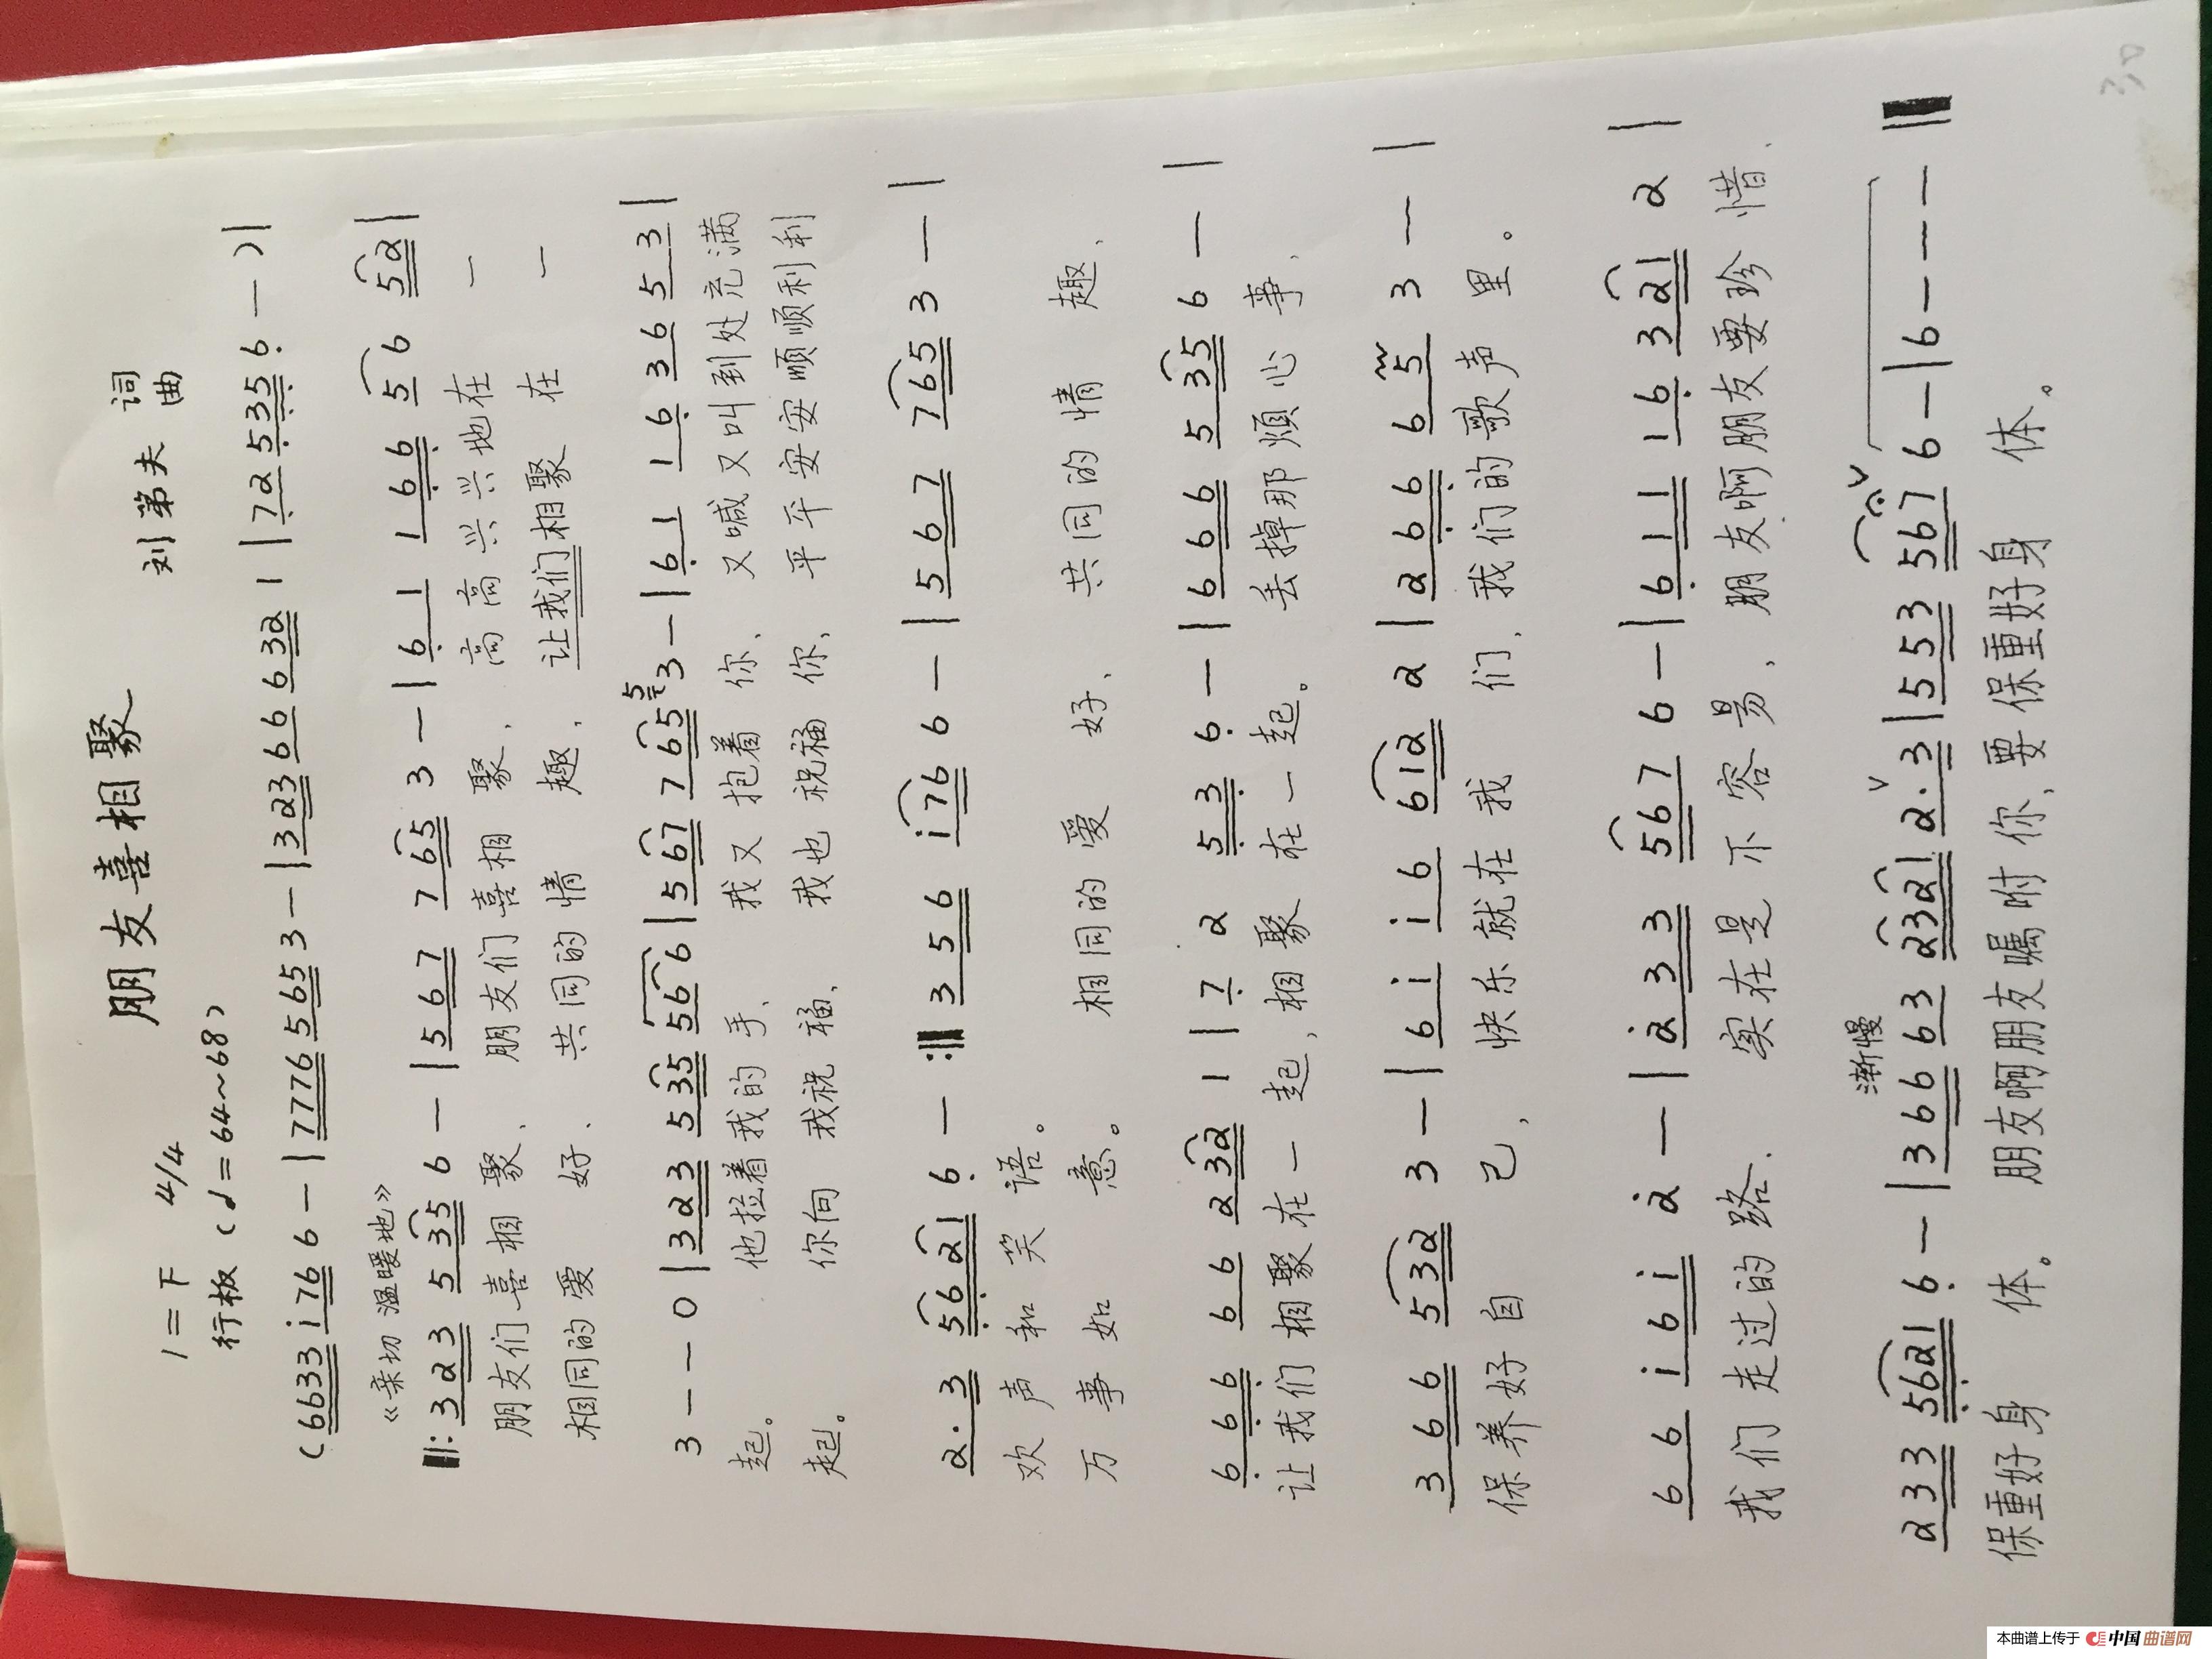 朋友喜相聚
1=F 4/4 刘第夫 词曲
行板 (♩=64~68)
(6633 i 76 6 — | 7776 5 65 3 — | 3 23 6 6 6 32 1 | 7 2 5 35 6 — ) |
《亲切 温暖地》
‖: 3 2 3 5 35 6 — | 5 6 7 7 65 3 — | 6 1 1 6 6 5 6 52 |
朋友们喜相聚、朋友们喜相聚、高高兴兴地在一
相同的爱好、共同的情趣,让我们相聚在一
3 — — 0 | 3 2 3 5 35 56 6 | 5 67 7 65 3 — | 6 1 1 6 3 6 5 3 |
起。他拉着我的手、我又抱着你、又喊又叫到处充满
起。你向我祝福、我也祝福你,平平安安顺顺利利
2· 3 56 21 6 — :‖ 3 5 6 i 76 6 — | 5 6 7 7 65 3 — |
欢声和笑语。相同的爱好、共同的情趣、
万事如意。
6 6 6 6 6 2 32 1 | 7 2 5 3 6 — | 6 6 6 5 35 6 — |
让我们相聚在一起,相聚在一起。丢掉那烦心事、
3 6 6 5 32 3 — | 6 i i 6 612 2 | 2 6 6 6 5 3 — |
保养好自己,快乐就在我们、我们的歌声里。
6 6 i 6 i 2 — | 2 3 3 5 67 6 — | 6 1 1 1 6 3 21 2 |
我们走过的路、实在是不容易、朋友啊朋友要珍惜、
渐慢
2 3 3 5621 6 — | 3 6 6 6 3 2321 2· 3 | 5 5 3 5 67 6 — | 6 — — — ‖
保重好身体。朋友啊朋友嘱咐你、要保重好身体。
30
本曲谱上传于 中国曲谱网